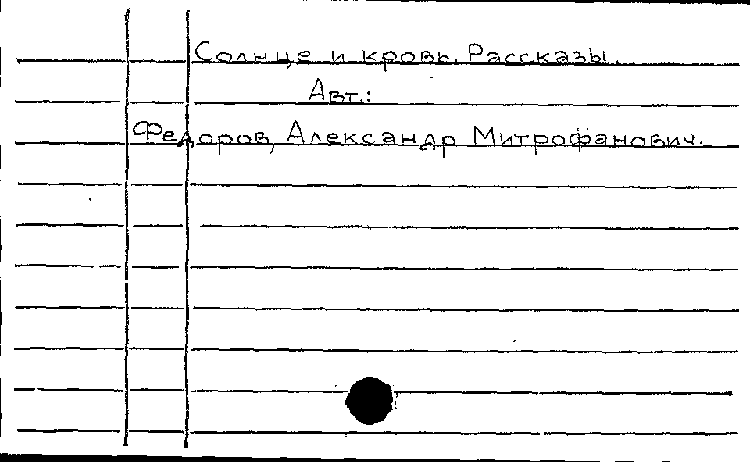 Солнце и кровь. Рассказы.
Авт.:
Федоров, Александр Митрофанович.